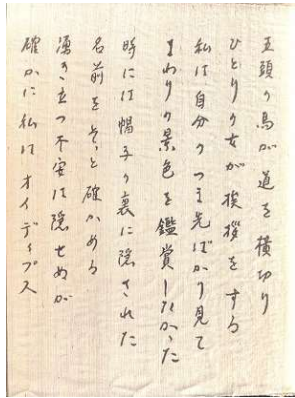 五頭の鳥が道を横切り
ひとりの女が挨拶をする
私は自分のつま先ばかり見て
まわりの景色を鑑賞しなかった
時には帽子の裏に隠された
名前をそっと確かめる
湧き立つ不安は隠せぬが
確かに私はオイディプス